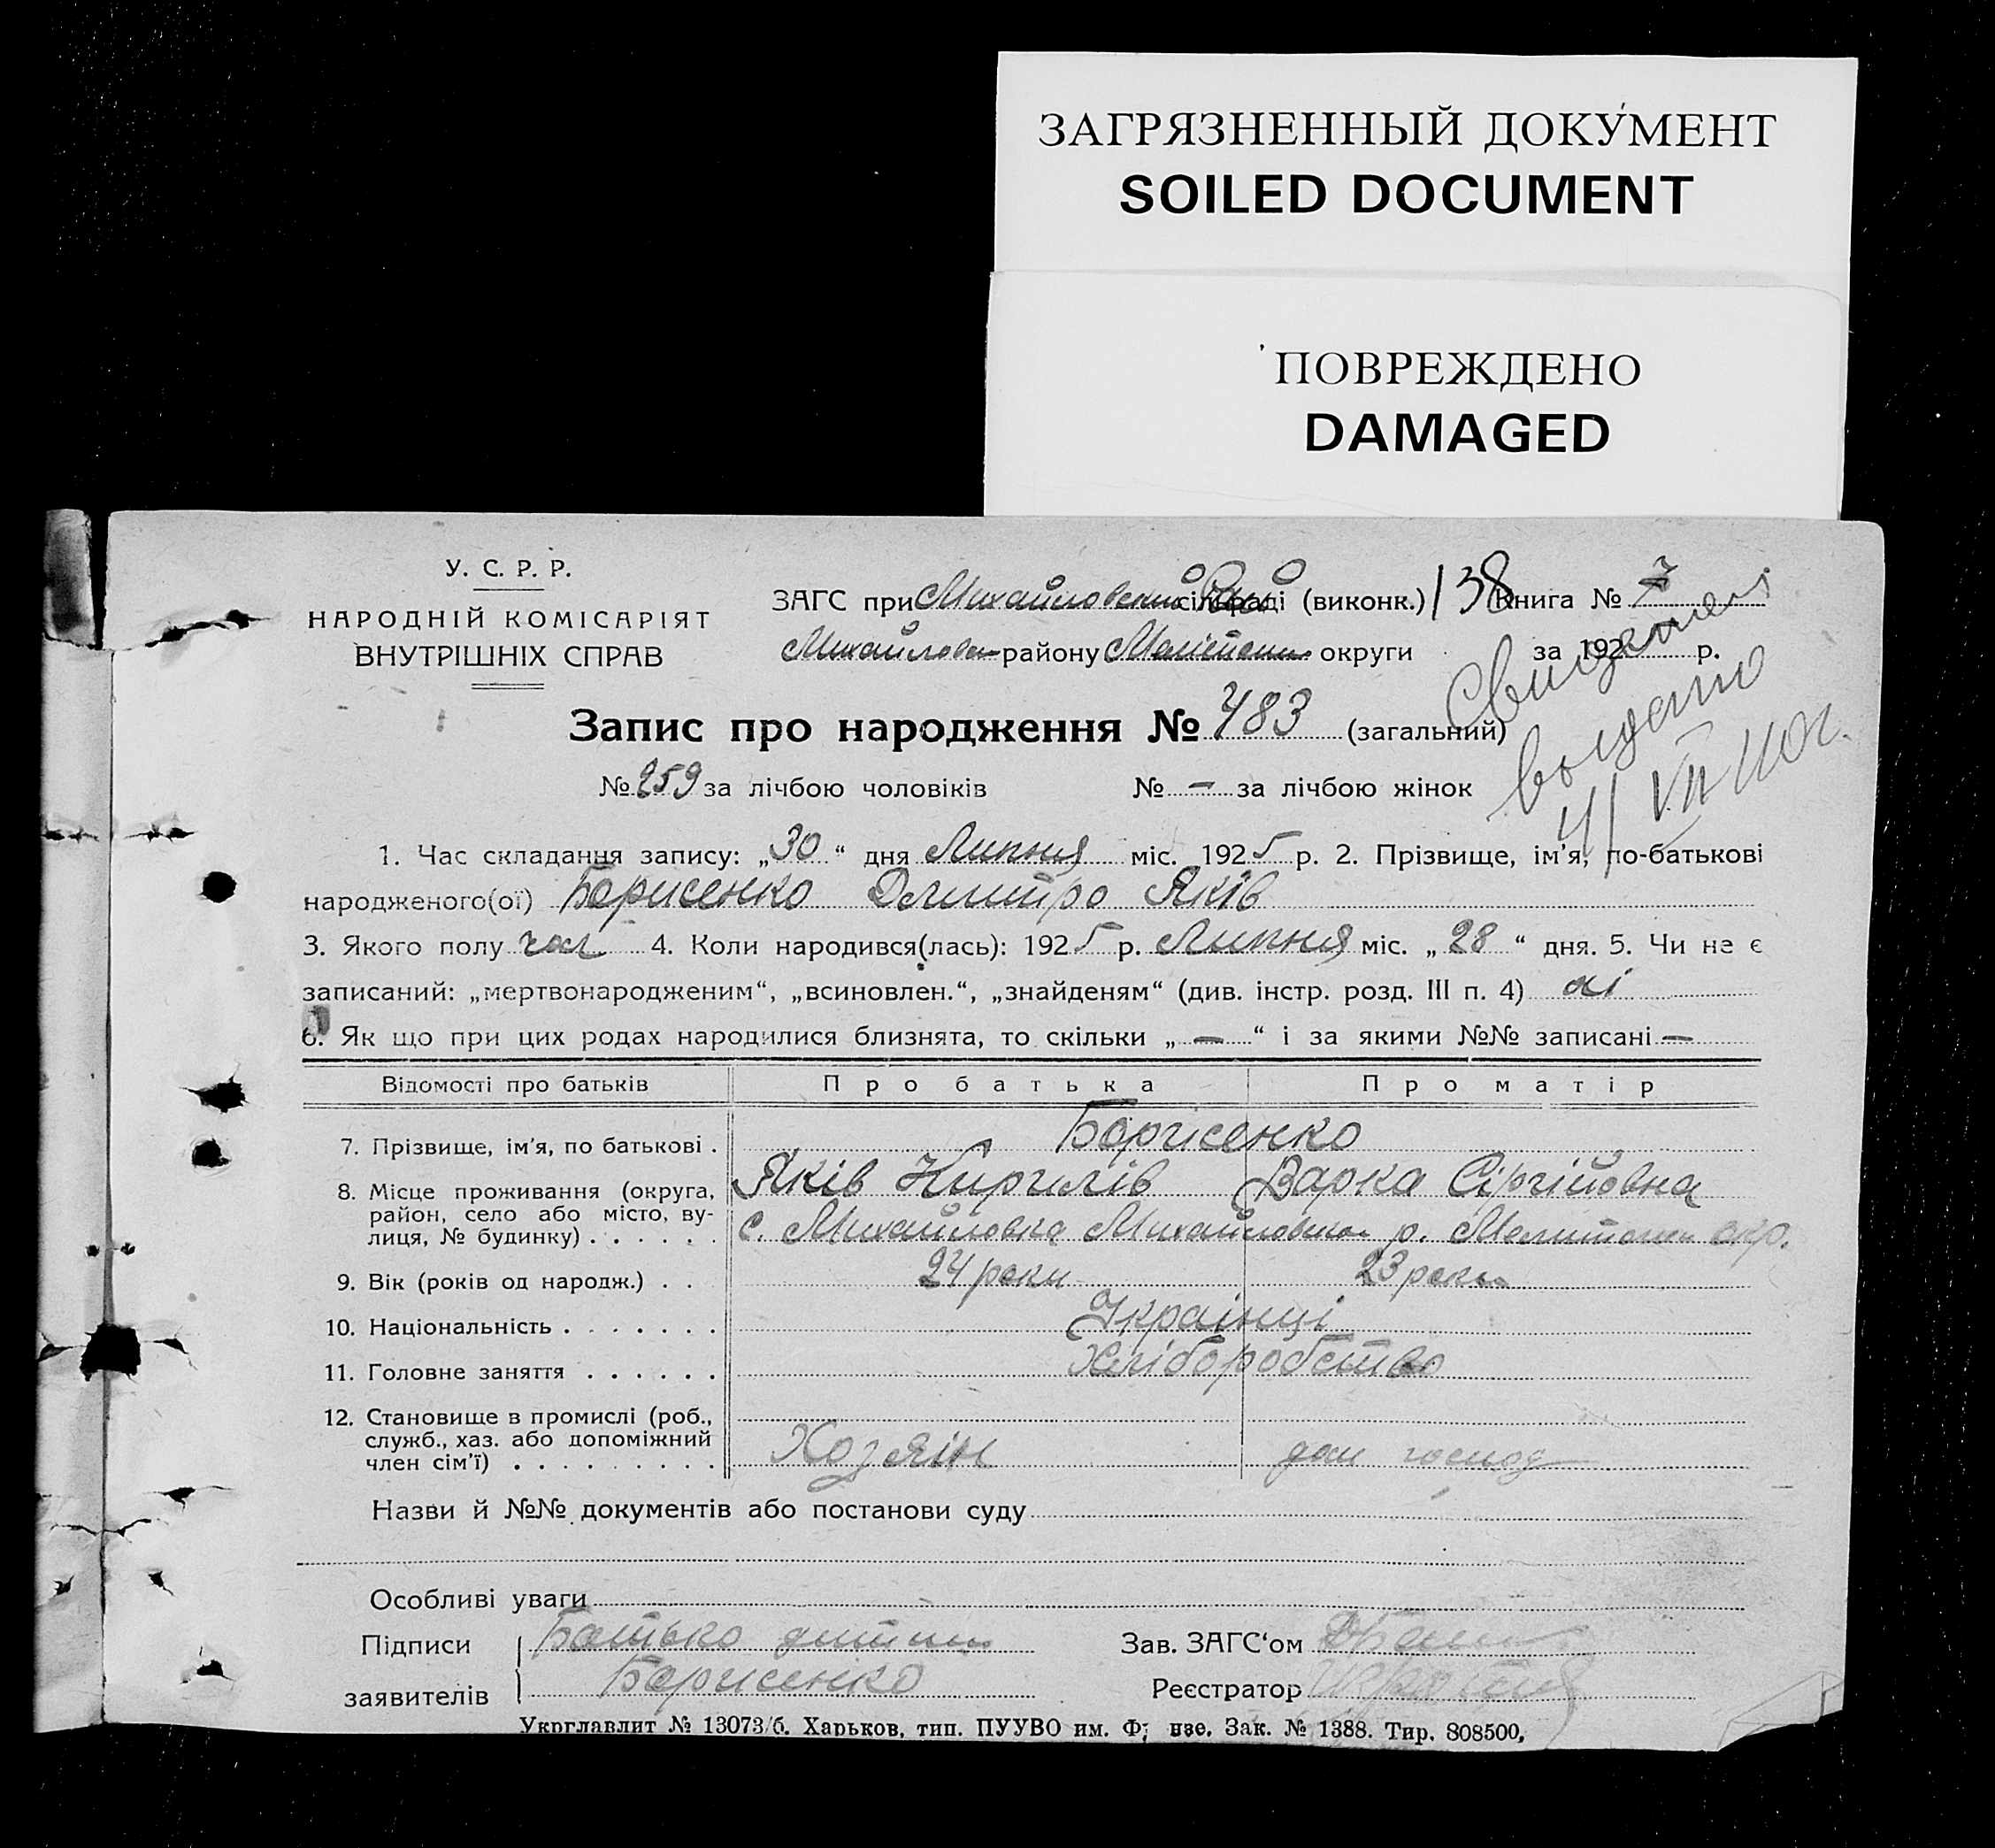 ЗАГРЯЗНЕННЫЙ ДОКУМЕНТ
SOILED DOCUMENT
ПОВРЕЖДЕНО
DAMAGED
У. С. Р. Р.
НАРОДНІЙ КОМІСАРІЯТ
ВНУТРІШНІХ СПРАВ
ЗАГС при сільраді (виконк.) 138 Книга № 7
району округи за 192 р.
выдано
Запис про народження № 483 (загальний)
№ 259 за лічбою чоловіків № — за лічбою жінок
1. Час складання запису: „30“ дня Липня міс. 1925 р. 2. Прізвище, ім'я, по-батькові
народженого(ої) Борисенко Дмитро Яків
3. Якого полу чол 4. Коли народився(лась): 1925 р. Липня міс. „28“ дня. 5. Чи не є
записаний: „мертвонародженим“, „всиновлен.“, „знайденям“ (див. інстр. розд. III п. 4)
6. Як що при цих родах народилися близнята, то скільки „—“ і за якими №№ записані —
Відомості про батьків Про батька Про матір
7. Прізвище, ім'я, по батькові . Борисенко
Яків Кирилів Варка Сіргійовна
8. Місце проживання (округа,
район, село або місто, ву-
лиця, № будинку) . . . . . . с. Михайловка р. окр.
9. Вік (років од народж.) . . 24 роки 23 роки
10. Національність . . . . . . . Українці
11. Головне заняття . . . . . . Хліборобство
12. Становище в промислі (роб.,
служб., хаз. або допоміжний
член сім'ї) . . . . . . . . . Хозяїн дом господ
Назви й №№ документів або постанови суду
Особливі уваги
Підписи Батько дитини Зав. ЗАГС‘ом
заявителів Борисенко Реєстратор
Укрглавлит № 13073/б. Харьков, тип. ПУУВО им. Зак. № 1388. Тир. 808500,